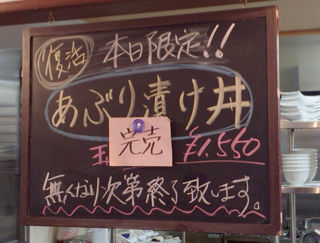 復活 本日限定!!
あぶり漬け丼
完売
¥1,550
無くなり次第終了致します。